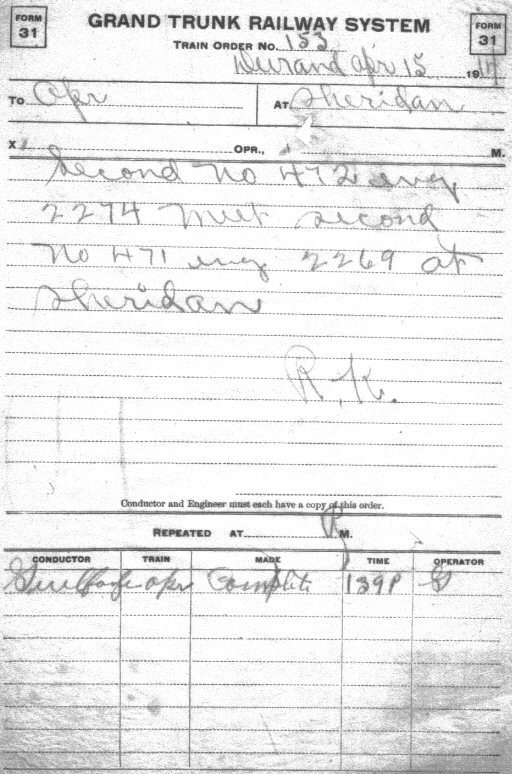 FORM 31
GRAND TRUNK RAILWAY SYSTEM
FORM 31
TRAIN ORDER No. 153
Durand Apr 15 19
To Opr
AT Sheridan
X
OPR., M.
Second No 472 eng
2274 meet second
No 471 eng 2269 at
Sheridan
R.K.
Conductor and Engineer must each have a copy of this order.
REPEATED AT P M.
CONDUCTOR TRAIN MADE TIME OPERATOR
opr Complete 139P G